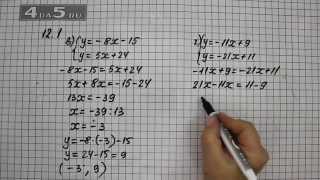 4DA5.RU
12.1
в) { y = -8x - 15
y = 5x + 24
-8x - 15 = 5x + 24
5x + 8x = -15 - 24
13x = -39
x = -39 : 13
x = -3
y = -8 · (-3) - 15
y = 24 - 15 = 9
(-3; 9)
г) { y = -11x + 9
y = -21x + 11
-11x + 9 = -21x + 11
21x - 11x = 11 - 9